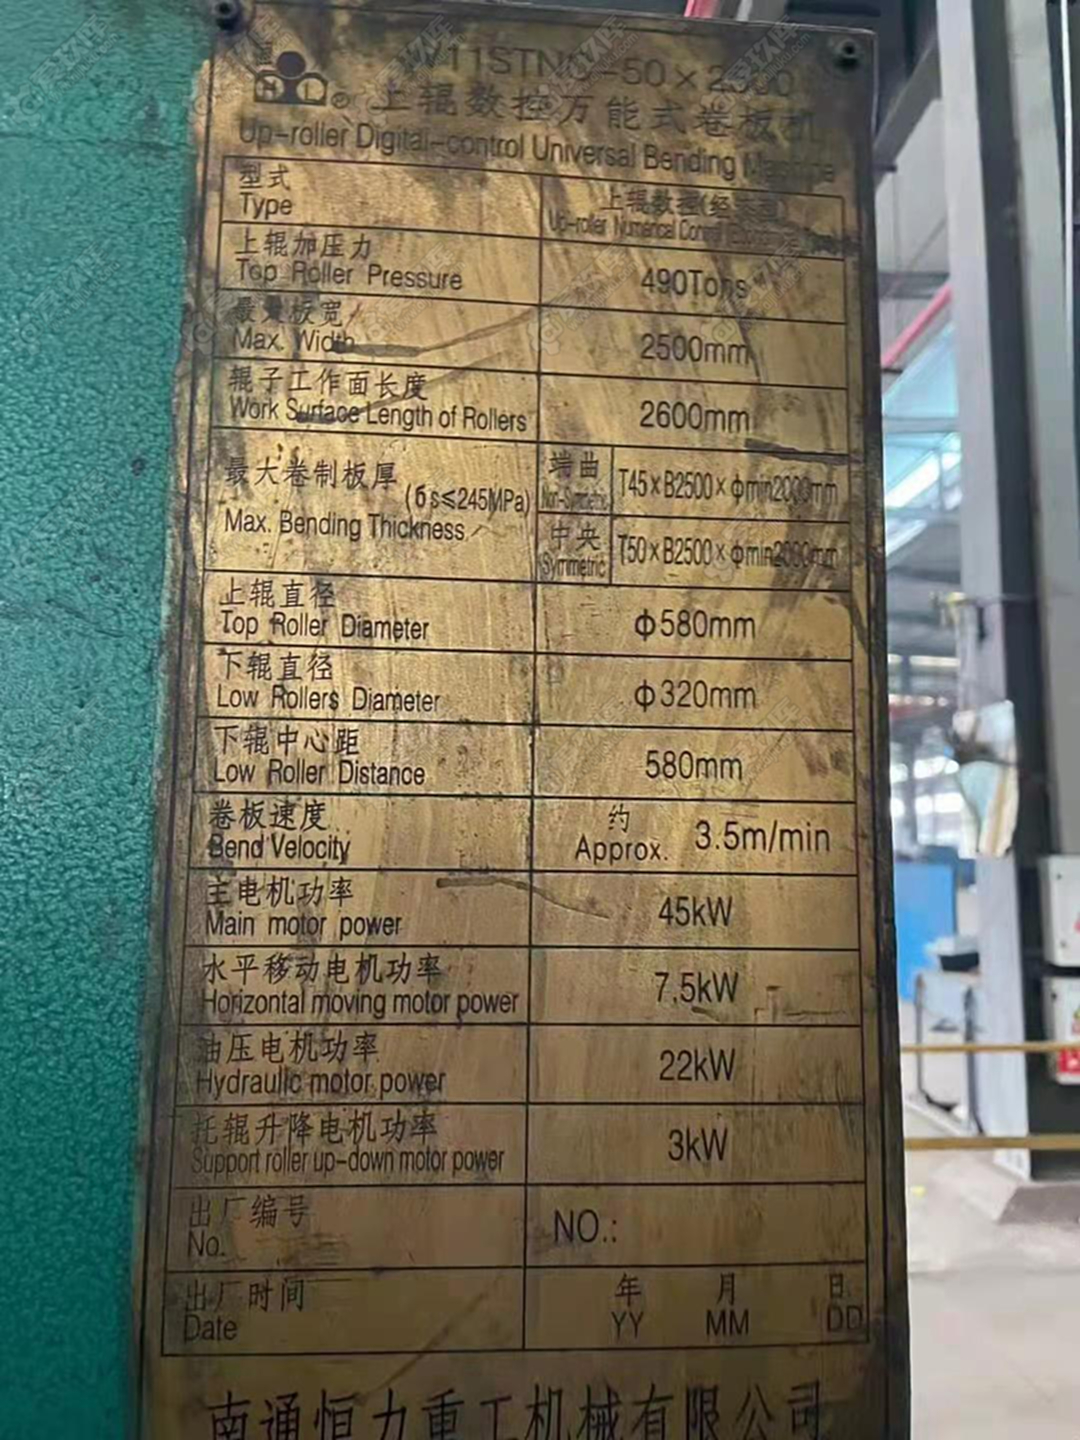 HL®
W11STNC-50×2500
上辊数控万能式卷板机
Up-roller Digital-control Universal Bending Machine
型式
Type
上辊数控
Up-roller Numerical Control
上辊加压力
Top Roller Pressure
490Tons
最大板宽
Max. Width
2500mm
辊子工作面长度
Work Surface Length of Rollers
2600mm
最大卷制板厚
(бs≤245MPa)
Max. Bending Thickness
端曲
Non-Symmetric
T45×B2500×φmin2000mm
中央
Symmetric
T50×B2500×φmin2000mm
上辊直径
Top Roller Diameter
φ580mm
下辊直径
Low Rollers Diameter
φ320mm
下辊中心距
Low Roller Distance
580mm
卷板速度
Bend Velocity
约
Approx. 3.5m/min
主电机功率
Main motor power
45kW
水平移动电机功率
Horizontal moving motor power
7.5kW
油压电机功率
Hydraulic motor power
22kW
托辊升降电机功率
Support roller up-down motor power
3kW
出厂编号
No.
NO.:
出厂时间
Date
年 月 日
YY MM DD
南通恒力重工机械有限公司